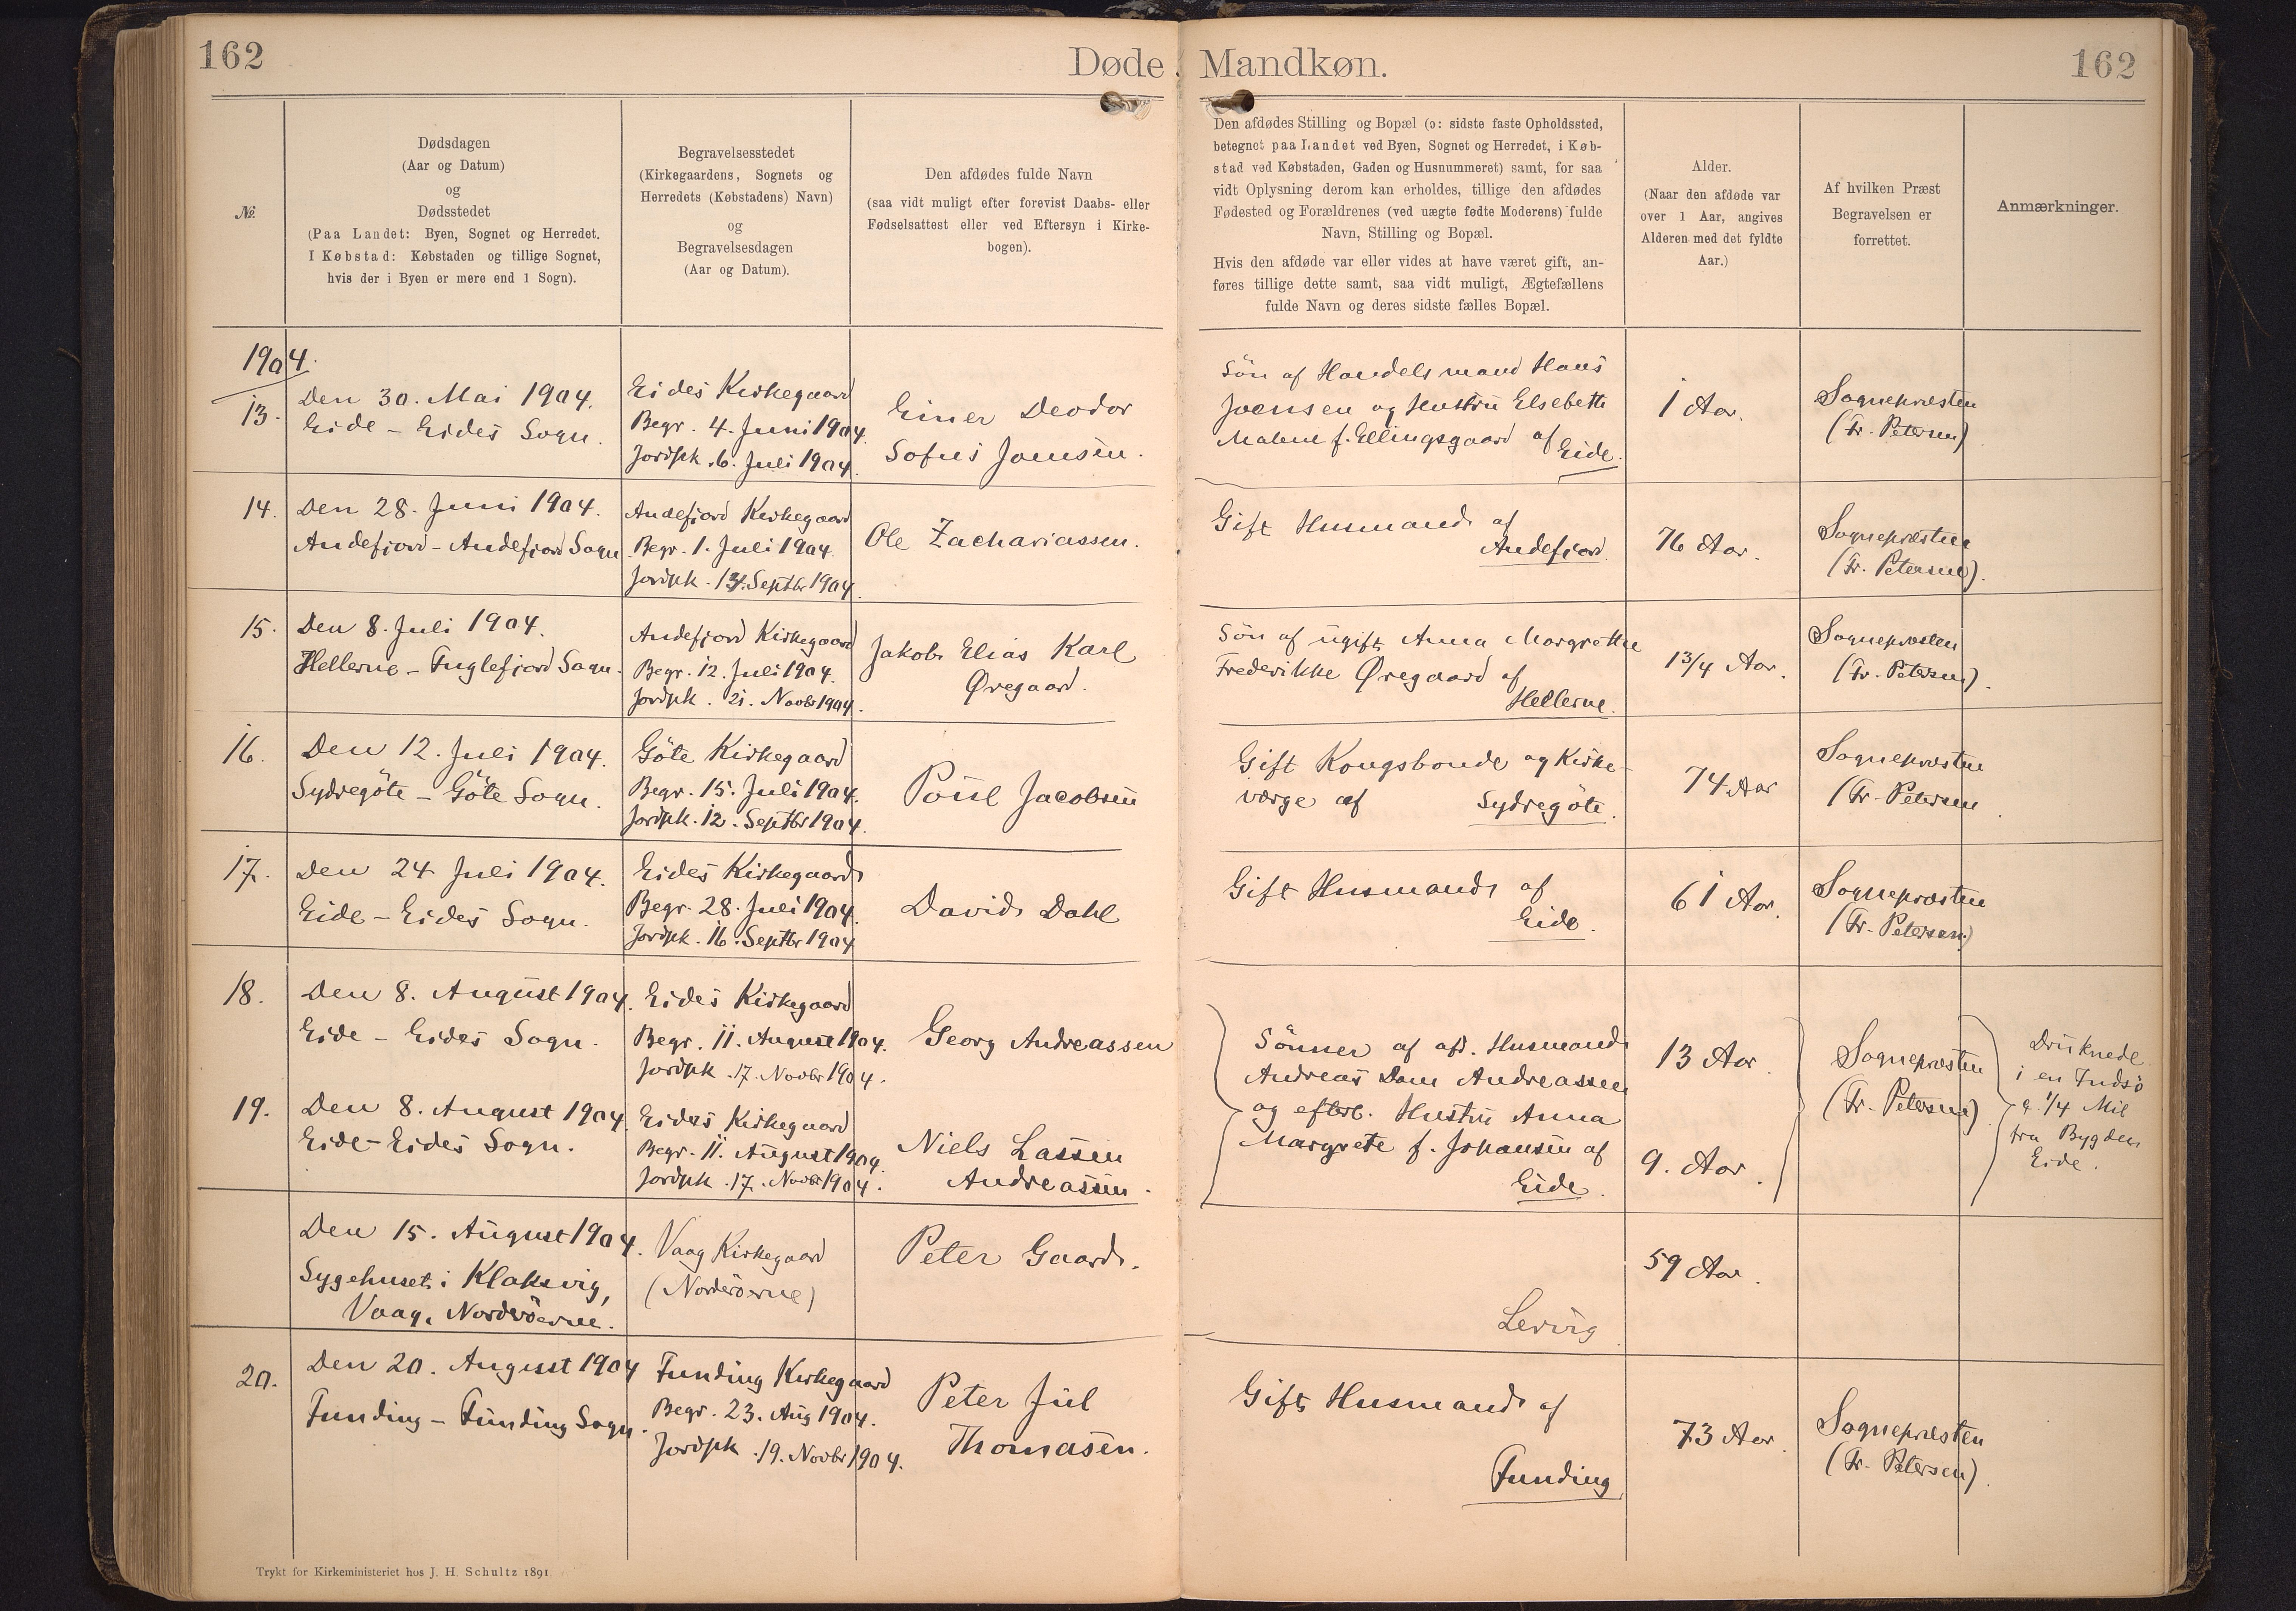 162
Døde Mandkøn.
162
№
Dødsdagen
(Aar og Datum)
og
Dødsstedet
(Paa Landet: Byen, Sognet og Herredet.
I Købstad: Købstaden og tillige Sognet,
hvis der i Byen er mere end 1 Sogn).
Begravelsesstedet
(Kirkegaardens, Sognets og
Herredets (Købstadens) Navn)
og
Begravelsesdagen
(Aar og Datum).
Den afdødes fulde Navn
(saa vidt muligt efter forevist Daabs- eller
Fødselsattest eller ved Eftersyn i Kirke-
bogen).
Den afdødes Stilling og Bopæl (ɔ: sidste faste Opholdssted,
betegnet paa Landet ved Byen, Sognet og Herredet, i Køb-
stad ved Købstaden, Gaden og Husnummeret) samt, for saa
vidt Oplysning derom kan erholdes, tillige den afdødes
Fødested og Forældrenes (ved uægte fødte Moderens) fulde
Navn, Stilling og Bopæl.
Hvis den afdøde var eller vides at have været gift, an-
føres tillige dette samt, saa vidt muligt, Ægtefællens
fulde Navn og deres sidste fælles Bopæl.
Alder.
(Naar den afdøde var
over 1 Aar, angives
Alderen med det fyldte
Aar.)
Af hvilken Præst
Begravelsen er
forrettet.
Anmærkninger.
1904.
13.
Den 30. Mai 1904.
Eide - Eides Sogn.
Eides Kirkegaard
Begr. 4. Juni 1904.
Jordpk. 6. Juli 1904.
Einer Deodor
Sofus Joensen.
Søn af Handelsmand Hans
Joensen og Hustru Elsebeth
Malene f. Ellingsgaard af Eide.
1 Aar.
Sognepræsten
(Fr. Petersen)
14.
Den 28. Juni 1904.
Andefjord - Andefjord Sogn
Andefjord Kirkegaard
Begr. 1. Juli 1904.
Jordpk. 14. Septbr 1904.
Ole Zachariassen.
Gift Husmand af
Andefjord.
76 Aar.
Sognepræsten
(Fr. Petersen).
15.
Den 8. Juli 1904.
Hellerne - Fuglefjord Sogn.
Andefjord Kirkegaard
Begr. 12. Juli 1904.
Jordpk. 21. Novbr 1904.
Jakob Elias Karl
Øregaard.
Søn af ugift Anna Margrethe
Frederikke Øregaard af
Hellerne.
1 3/4 Aar.
Sognepræsten
(Fr. Petersen).
16.
Den 12. Juli 1904.
Sydregöte - Göte Sogn.
Göte Kirkegaard
Begr. 15. Juli 1904.
Jordpk. 12. Septbr 1904.
Poul Jacobsen
Gift Kongsbonde og Kirke-
værge af Sydregöte.
74 Aar
Sognepræsten
(Fr. Petersen
17.
Den 24 Juli 1904.
Eide - Eides Sogn.
Eides Kirkegaard
Begr. 28. Juli 1904.
Jordpk. 16. Septbr 1904
David Dahl
Gift Husmand af
Eide.
61 Aar.
Sognepræsten
(Fr. Petersen)
18.
Den 8. August 1904.
Eide - Eides Sogn.
Eides Kirkegaard
Begr. 11. August 1904.
Jordpk. 17. Novbr 1904.
Georg Andreassen
Sönner af afd. Husmand
Andreas Dam Andreassen
og efterl. Hustru Anna
Margrete f. Johansen af
Eide.
13 Aar.
Sognepræsten
(Fr. Petersen)
Druknede
i en Indsö
c. 1/4 Mil
fra Bygden
Eide.
19.
Den 8. August 1904
Eide - Eides Sogn.
Eides Kirkegaard
Begr. 11. August 1904.
Jordpk. 17. Novbr 1904.
Niels Lassen
Andreassen.
9. Aar.
Den 15. August 1904.
Sygehuset i Klaksvig,
Vaag, Norderöerne.
Vaag Kirkegaard
(Norderöerne)
Peter Gaard.
Lervig
59 Aar.
20.
Den 20. August 1904
Funding - Funding Sogn.
Funding Kirkegaard
Begr. 23. Aug 1904.
Jordpk. 19. Novbr 1904.
Peter Jul
Thomasen.
Gift Husmand af
Funding
73 Aar.
Sognepræsten
(Fr. Petersen)
Trykt for Kirkeministeriet hos J. H. Schultz 1891.